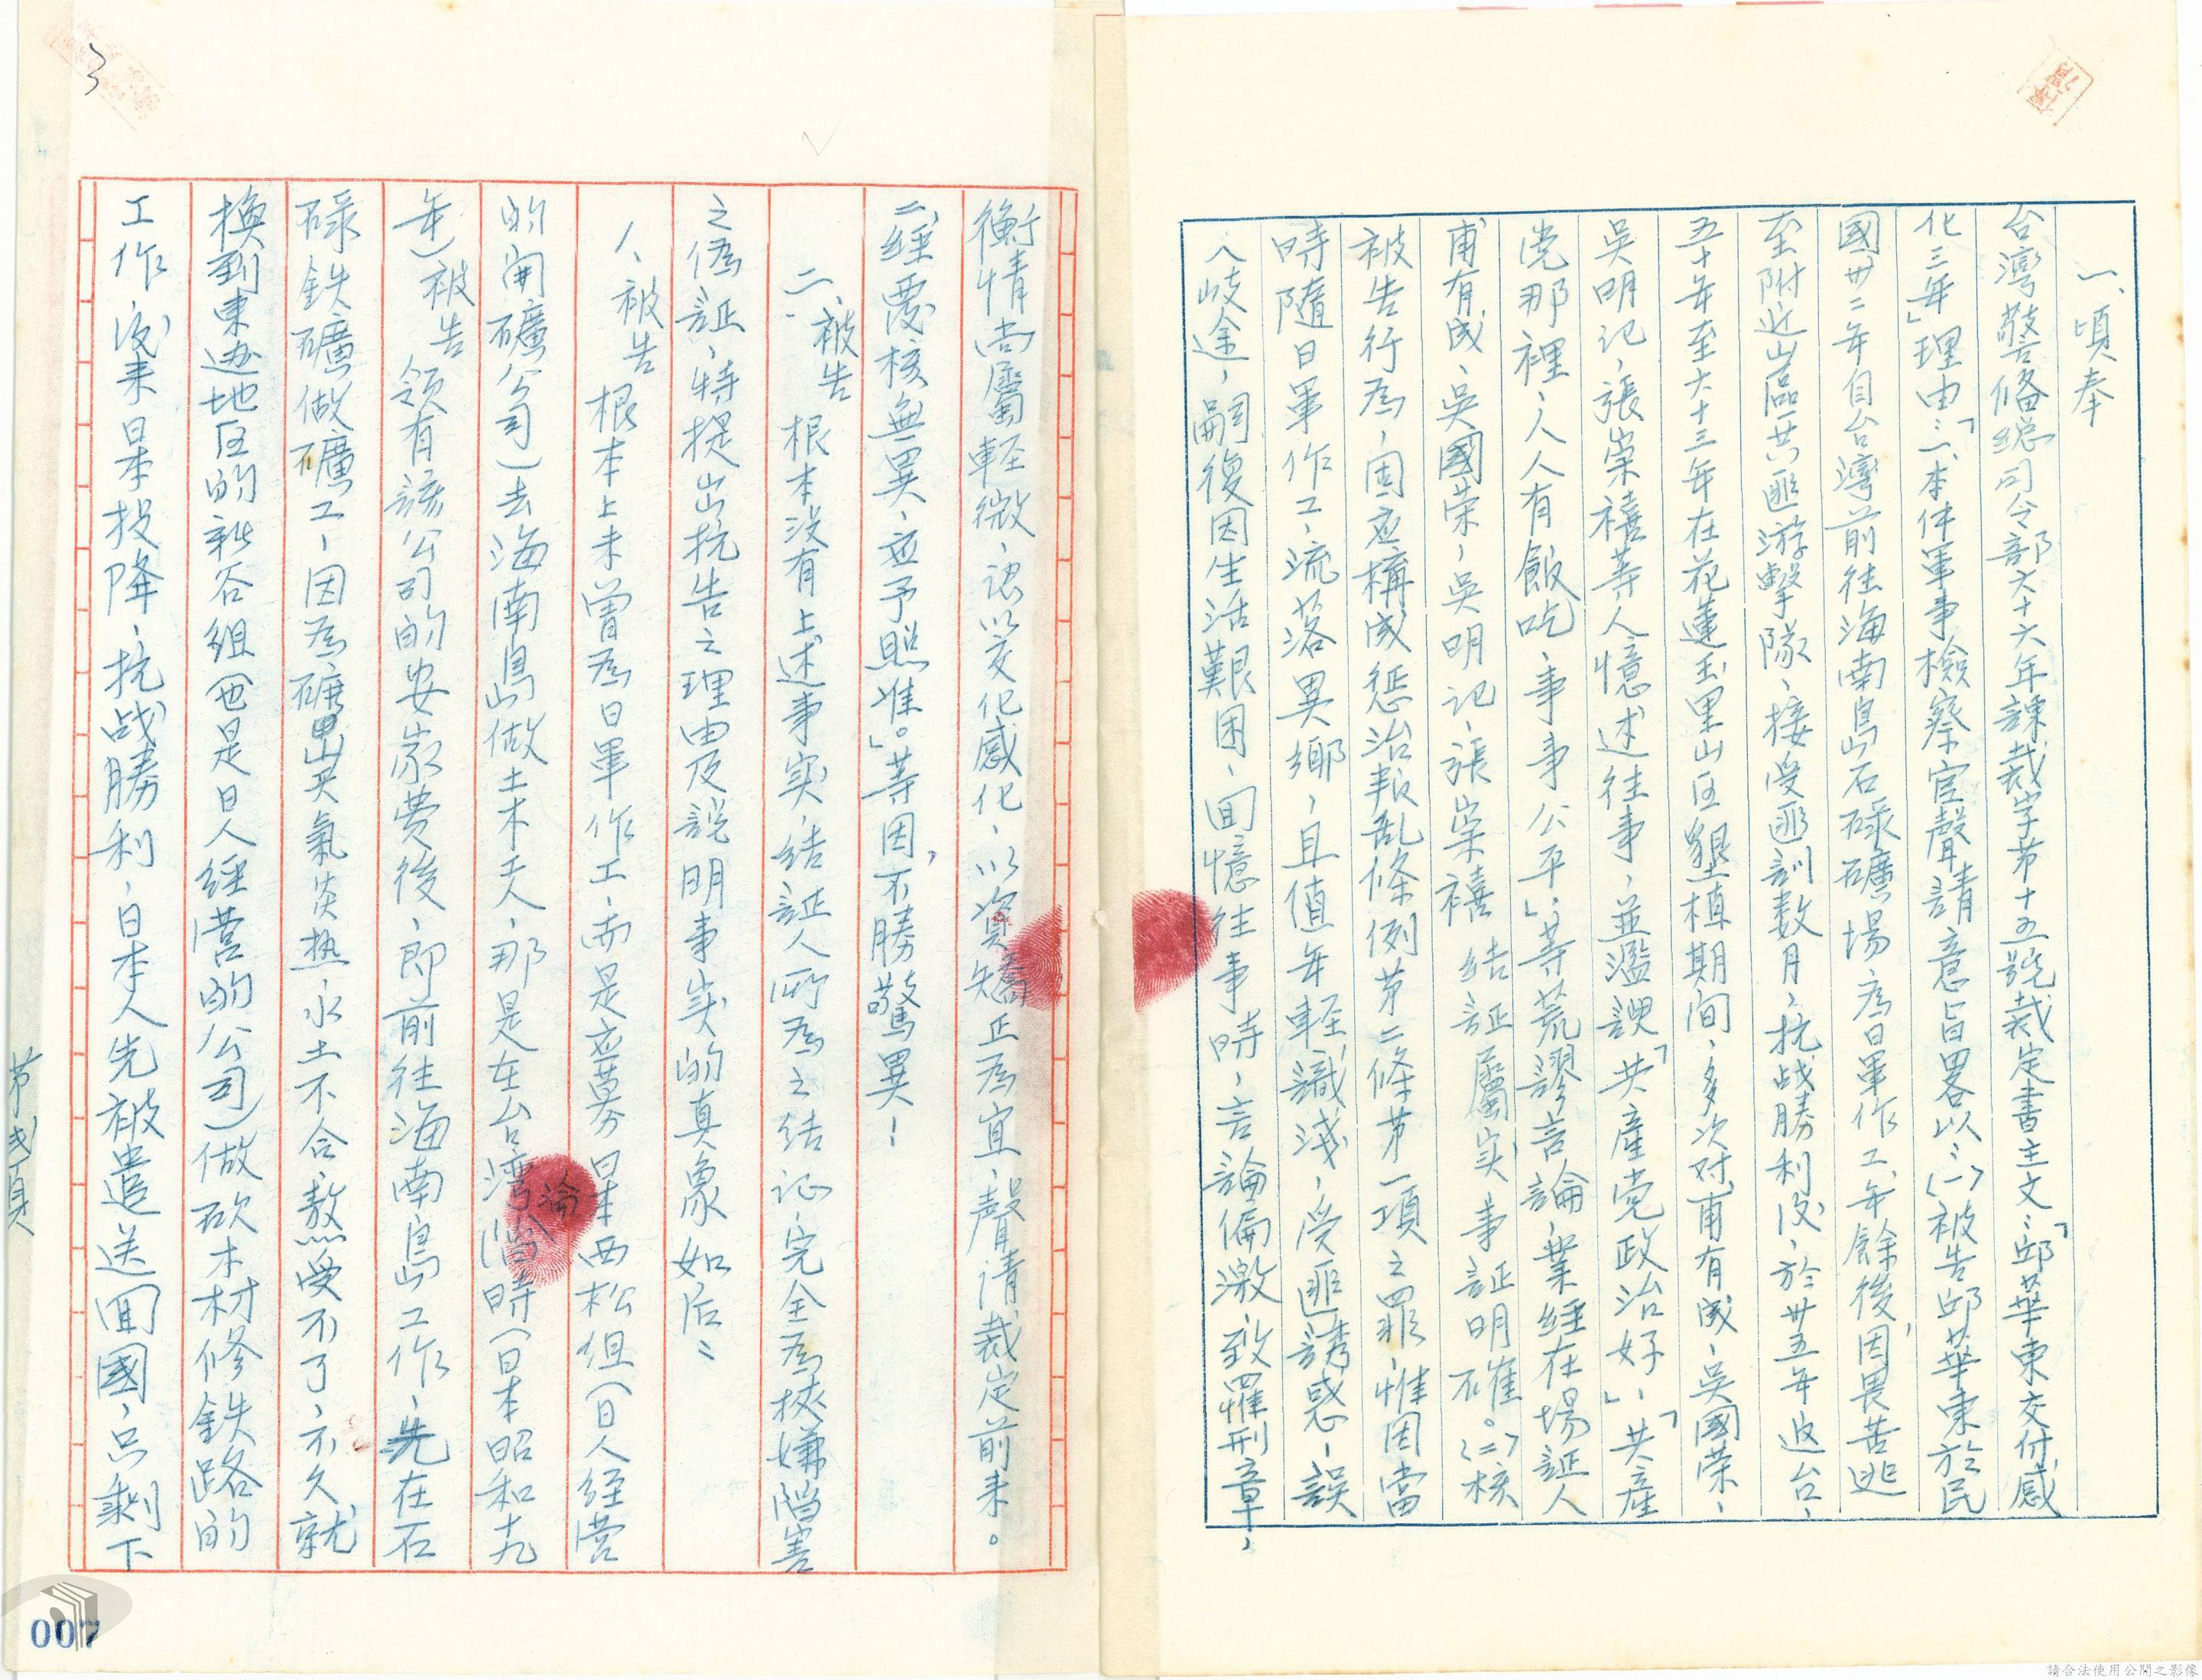 一、頃奉
台灣警俻総司令部六十六年諫裁字苐十五號裁定書主文：「邱華東交付感
化三年」理由：「一、本件軍事檢察官聲請意旨畧以：(一)被告邱華東於民
國卅二年自台灣前往海南島石碌礦場為日軍作工、年餘後、因畏苦逃
至附近山區共匪游擊隊、接受匪訓数月，抗战勝利后，於卅五年返台、
五十年至六十三年在花蓮玉里山区墾植期间，多次对甫有成、吳國荣、
吳明记，張崇禧等人憶述往事，並濫謏「共產党政治好」、「共產
党那裡，人人有飯吃，事事公平」等荒謬言論，業經在場証人
甫有成、吳國荣，吳明记、張崇禧結証屬实，事証明確。(二)核
被告行為，固应構成惩治叛乱條例苐二條苐一項之罪，惟因當
時隨日軍作工，流落異鄉，且值年輕識淺，受匪誘惑，誤
入歧途，嗣復因生活艱困，囬憶往事時，言論偏激，致罹刑章，
衡情尚屬輕微，認以交化感化、以資矯正為宜，聲请裁定前来。
二、經覆核無異，应予照准。」等因，不勝驚異！
二、被告根本没有上述事实，結証人所為之结证，完全為挾嫌陷害
之偽証，特提出抗告之理由及説明事实的真象如后：
1、被告根本上未曾為日軍作工，而是应募日本西松组（日人经营
的開礦公司）去海南島做土木夫，那是在台湾淪時（日本昭和十九
年）被告领有該公司的安家费後，即前往海南島工作，先在石
碌鉄礦做礦工，因為礦里天氣炎热，水土不合，熬受不了，不久就
換到東边地区的新谷組（也是日人經营的公司）做砍木材修鉄路的
工作，後来日本投降，抗战勝利，日本人先被遣送囬國，只剩下
苐弍頁
3
007
淪
請合法使用公開之影像